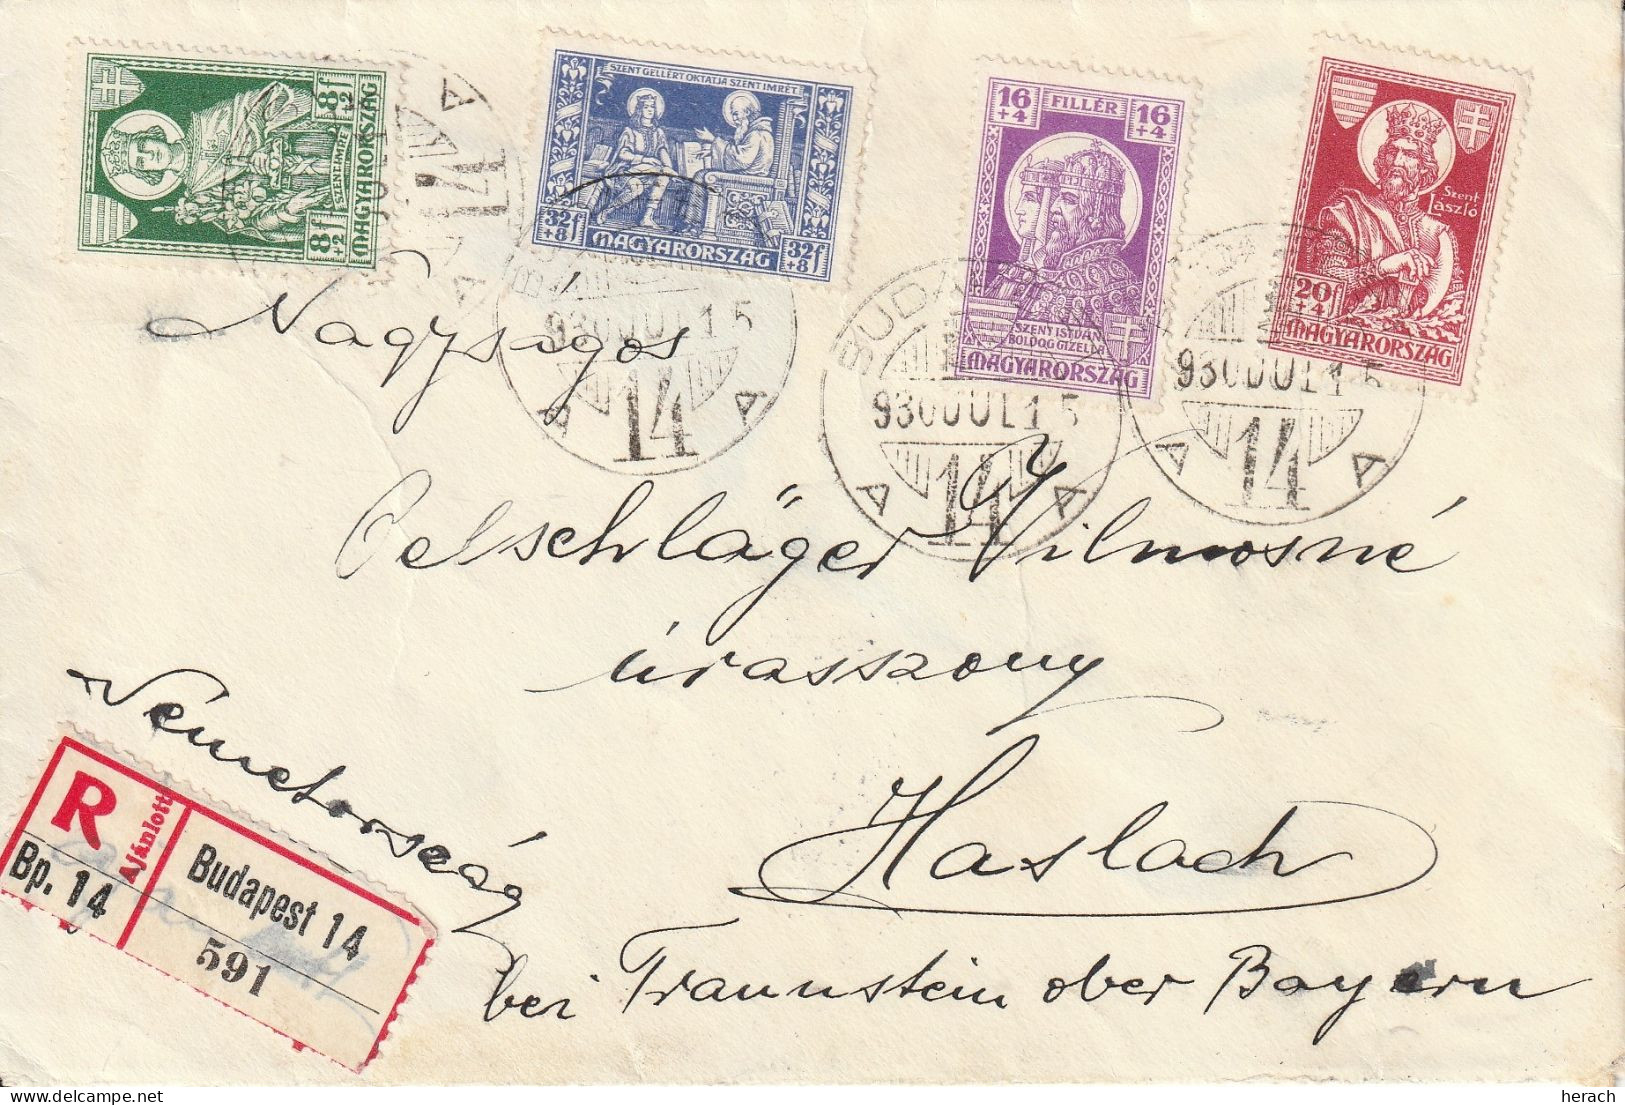 8f +2
8f +2
SZENT IMRE
MAGYARORSZÁG
SZENT GELLÉRT OKTATJA SZENT IMRÉT
32f +8
MAGYARORSZÁG
32f +8
16 +4
FILLÉR
16 +4
SZENT ISTVÁN
BOLDOG GIZELLA
MAGYARORSZÁG
Szent László
20f +4
MAGYARORSZÁG
A 14 A
930 JUL 15
A 14 A
BUDAPEST
930 JUL 15
A 14 A
930 JUL 15
A 14 A
Nagyságos
Oelschläger Vilmosné
úrasszony
Németország
Haslach
bei Traunstein ober Bayern
R
Ajánlott
Bp. 14
Budapest 14
591
© herach
delcampe.net